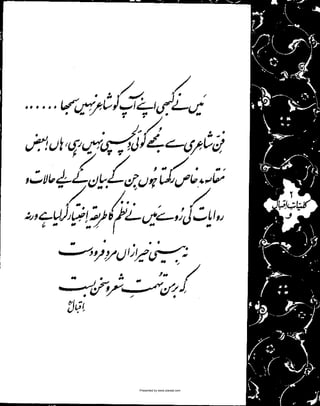 میں نے کبھی اپنے آپ کو شاعر نہیں سمجھا ......
فنِ شاعری سے مجھے کوئی دلچسپی نہیں رہی، ہاں بعض
مقاصد خاص رکھتا ہوں جن کے بیان کے لیے حالات و
روایات کی رو سے میں نے نظم کا طریقہ اختیار کر لیا ہے ورنہ
نہ بینی خیر ازاں مردِ فرودست
کہ بر من تہمتِ شعر و سخن بست
اقبالؒ
کلیاتِ اقبال
۲
و
Presented by www.ziaraat.com